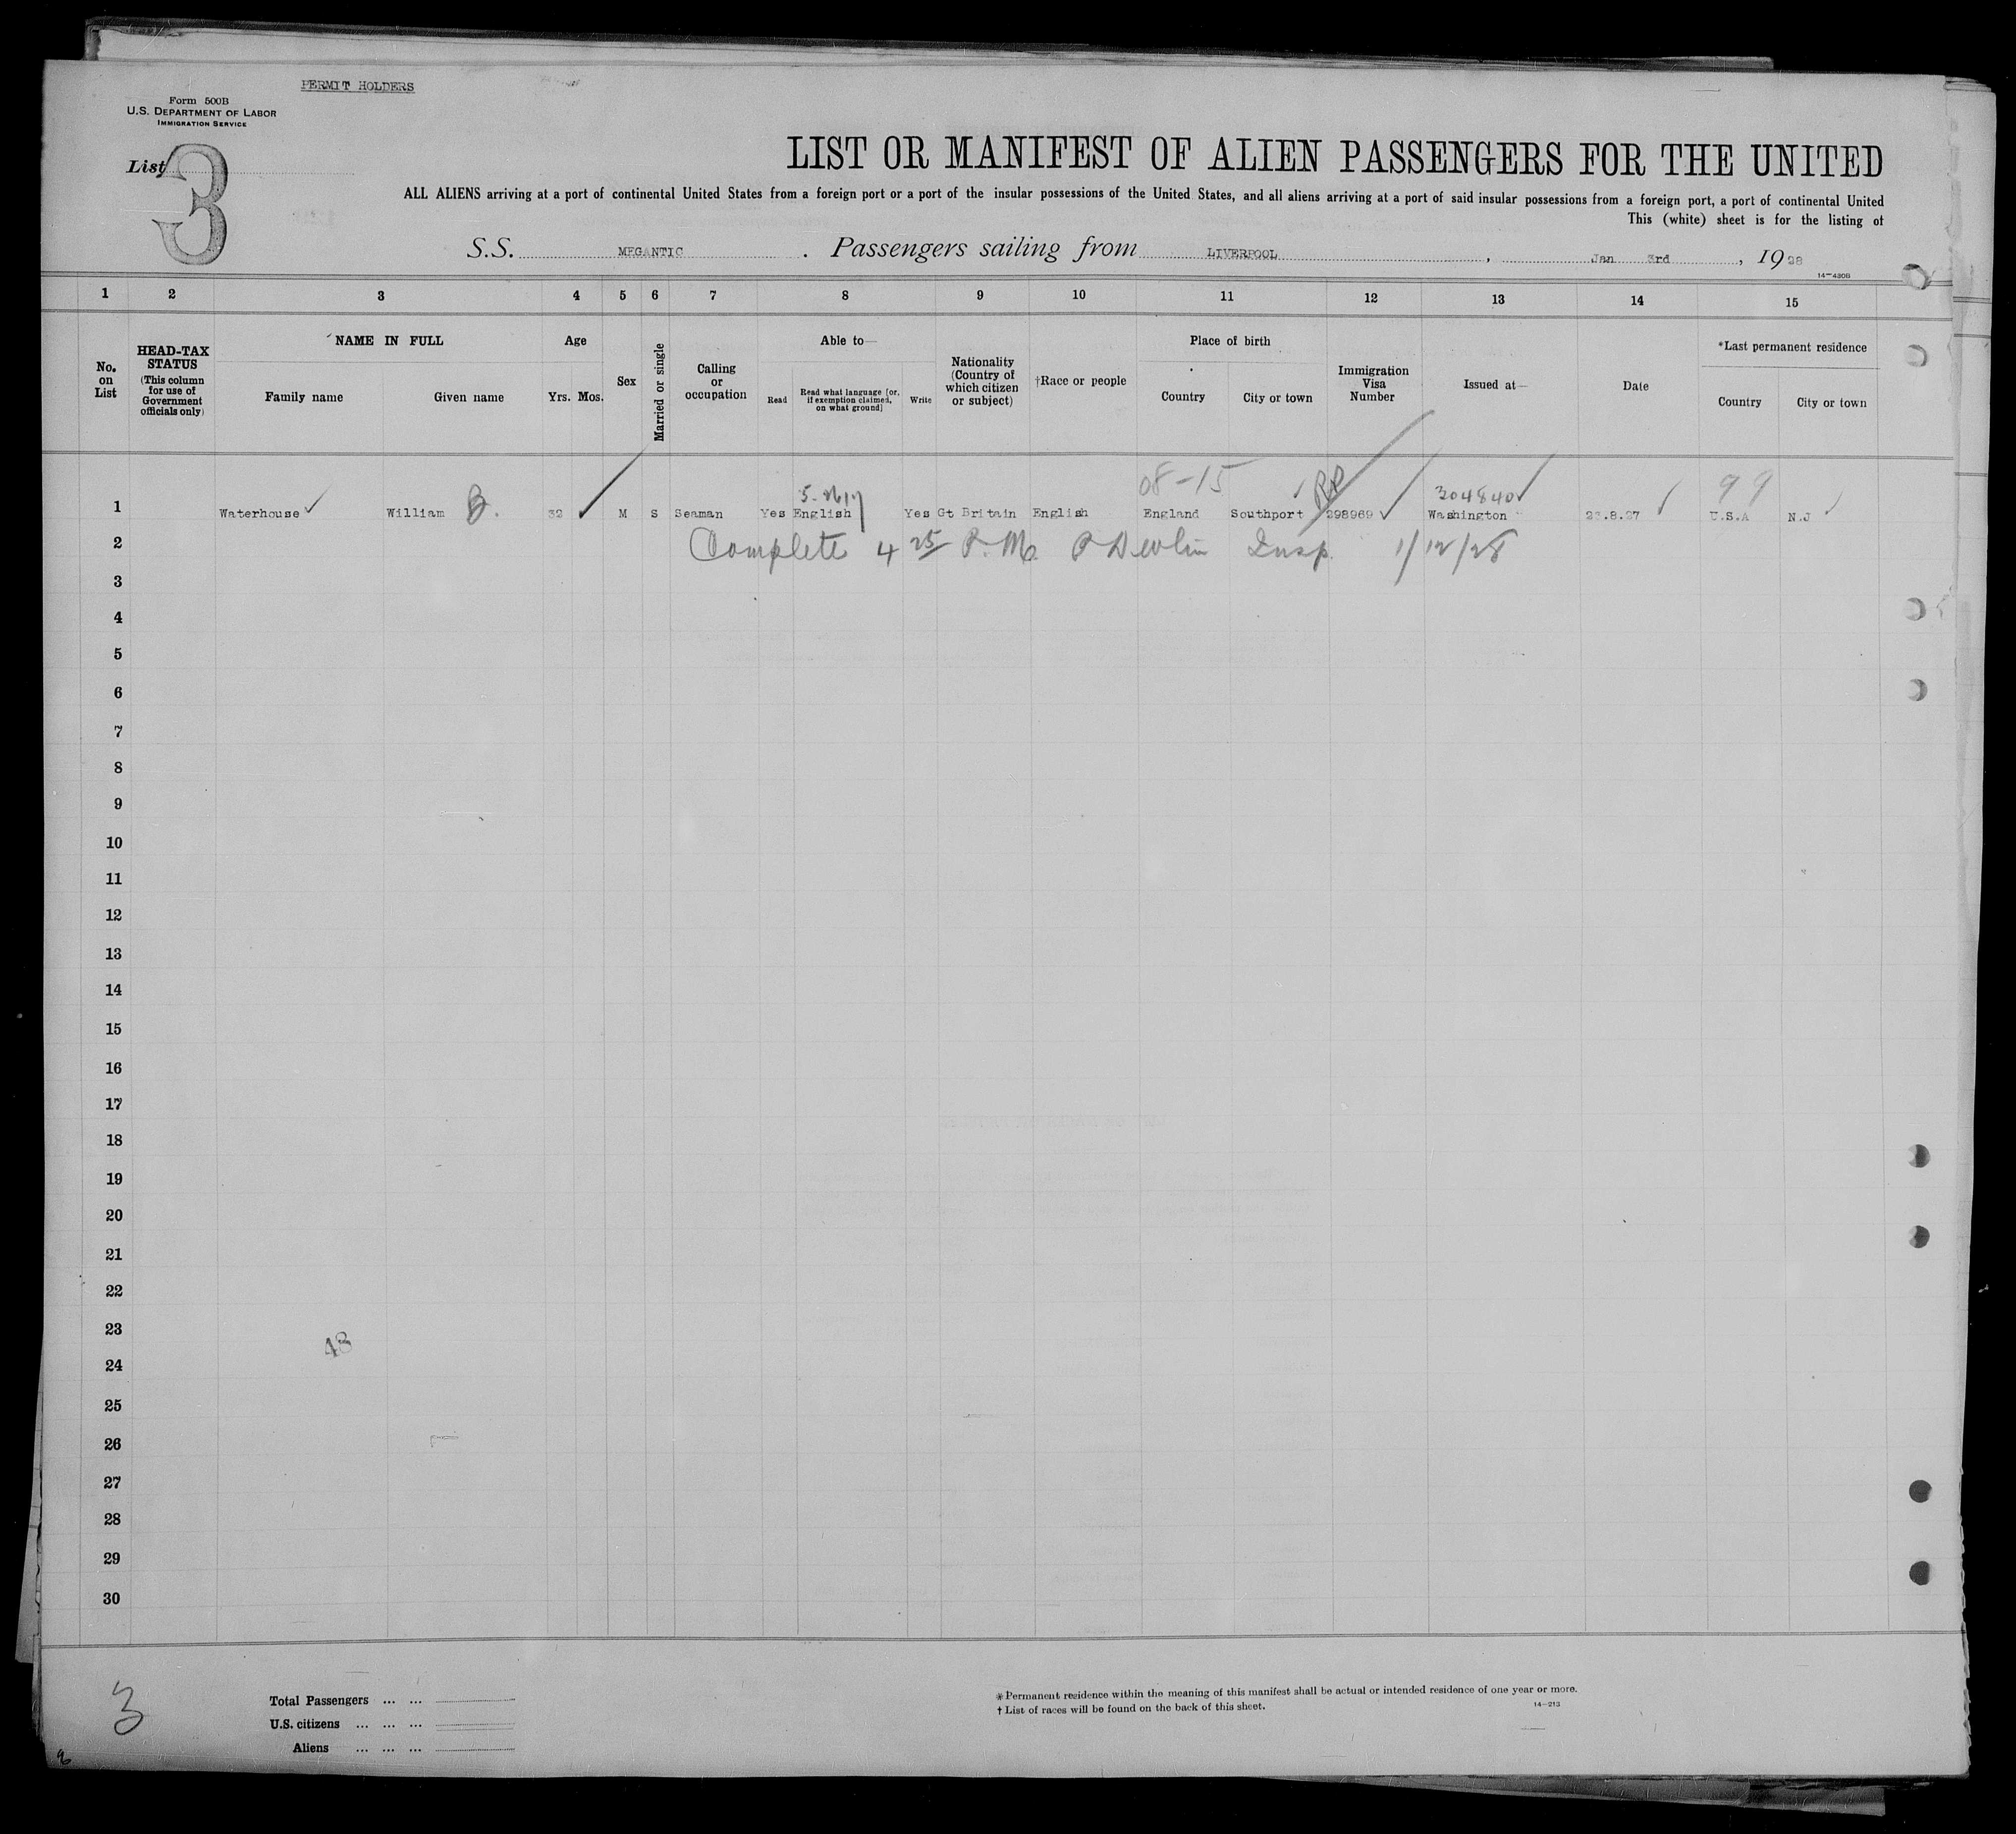 PERMIT HOLDERS
Form 500B
U.S. DEPARTMENT OF LABOR
IMMIGRATION SERVICE
List 3
LIST OR MANIFEST OF ALIEN PASSENGERS FOR THE UNITED
ALL ALIENS arriving at a port of continental United States from a foreign port or a port of the insular possessions of the United States, and all aliens arriving at a port of said insular possessions from a foreign port, a port of continental United
This (white) sheet is for the listing of
S.S. MEGANTIC . Passengers sailing from LIVERPOOL , Jan 3rd , 1928
14-430B
1 2 3 4 5 6 7 8 9 10 11 12 13 14 15
No. on List
HEAD-TAX STATUS (This column for use of Government officials only)
NAME IN FULL
Family name Given name
Age
Yrs. Mos.
Sex
Married or single
Calling or occupation
Able to—
Read
Read what language [or, if exemption claimed, on what ground]
Write
Nationality (Country of which citizen or subject)
†Race or people
Place of birth
Country City or town
Immigration Visa Number
Issued at—
Date
*Last permanent residence
Country City or town
08-15 RP 304840 99
1 Waterhouse William B. 32 M S Seaman Yes English Yes Gt Britain English England Southport 298969 Washington 23.8.27 U.S.A N.J
2 Complete 4 25 P.M. P Devlin Insp. 1/12/28
3
4
5
6
7
8
9
10
11
12
13
14
15
16
17
18
19
20
21
22
23
48
24
25
26
27
28
29
30
3
Total Passengers ... ...
U.S. citizens ... ... ...
Aliens ... ... ...
* Permanent residence within the meaning of this manifest shall be actual or intended residence of one year or more.
† List of races will be found on the back of this sheet.
14-213